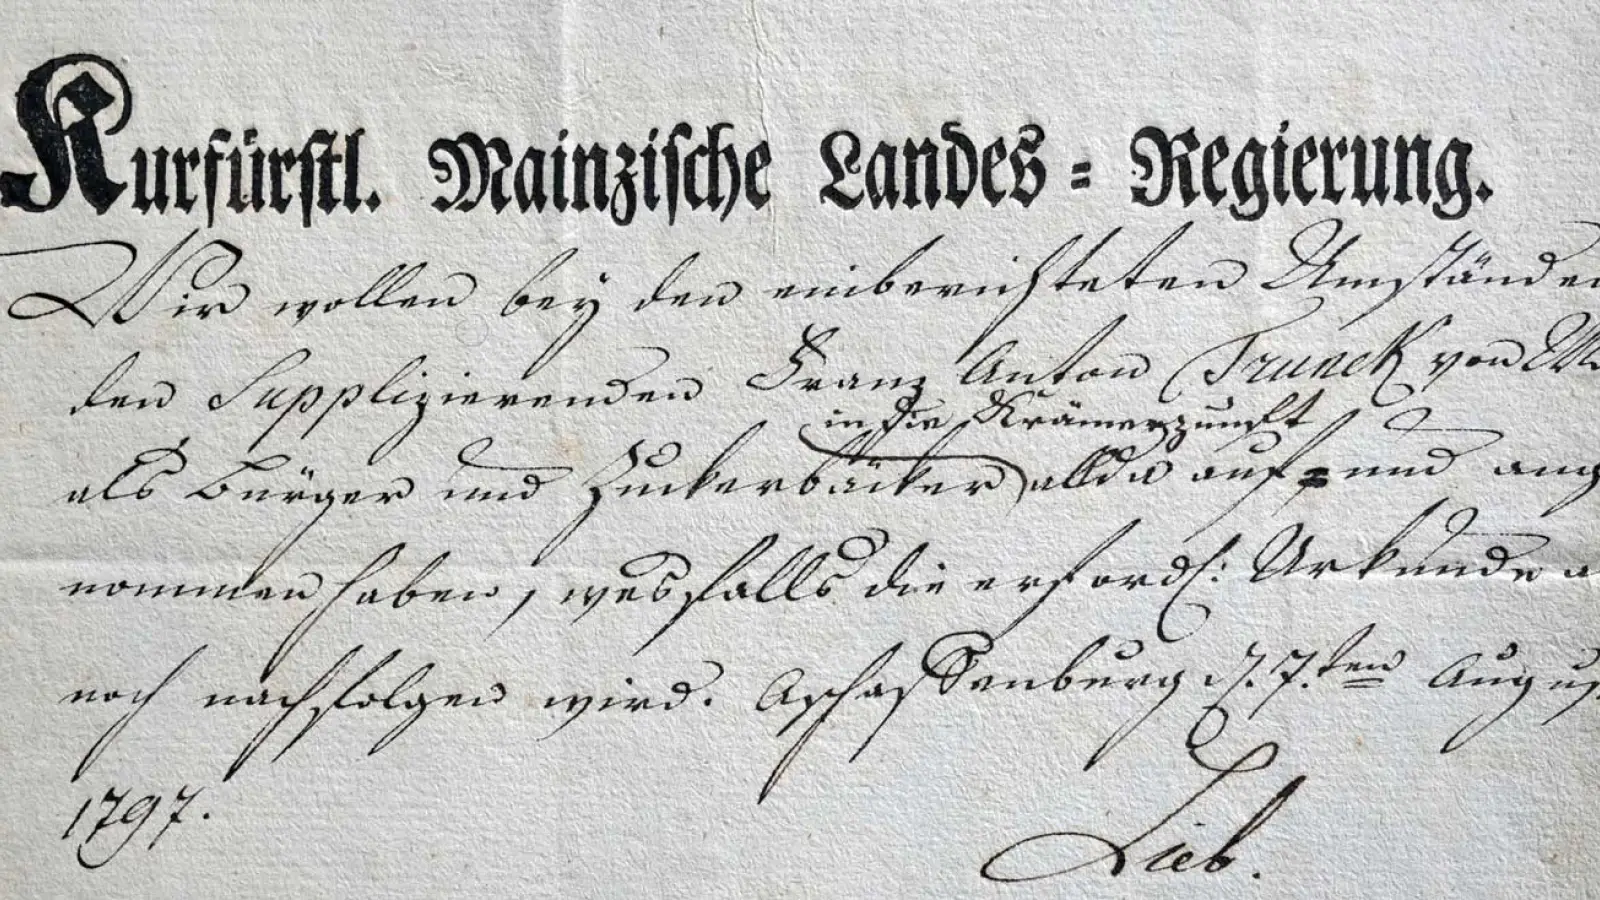 Kurfürstl. Mainzische Landes-Regierung.
Wir wollen bey den einberichteten Umständen
den Supplizierenden Franz Anton Trunck von
in die Krämerzunft
als Bürger und Zuckerbäcker allda auf- und ang
nommen haben, wesfalls die erforderl: Urkunde
noch nachfolgen wird. Aschaffenburg d. 7.ten August
1797.
Lieb.